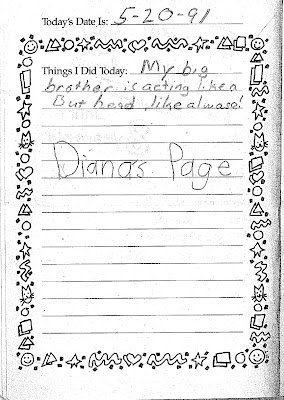 Today's Date Is: 5-20-91
Things I Did Today: My big
brother is acting like a
But head, like alwase!
Diana's Page